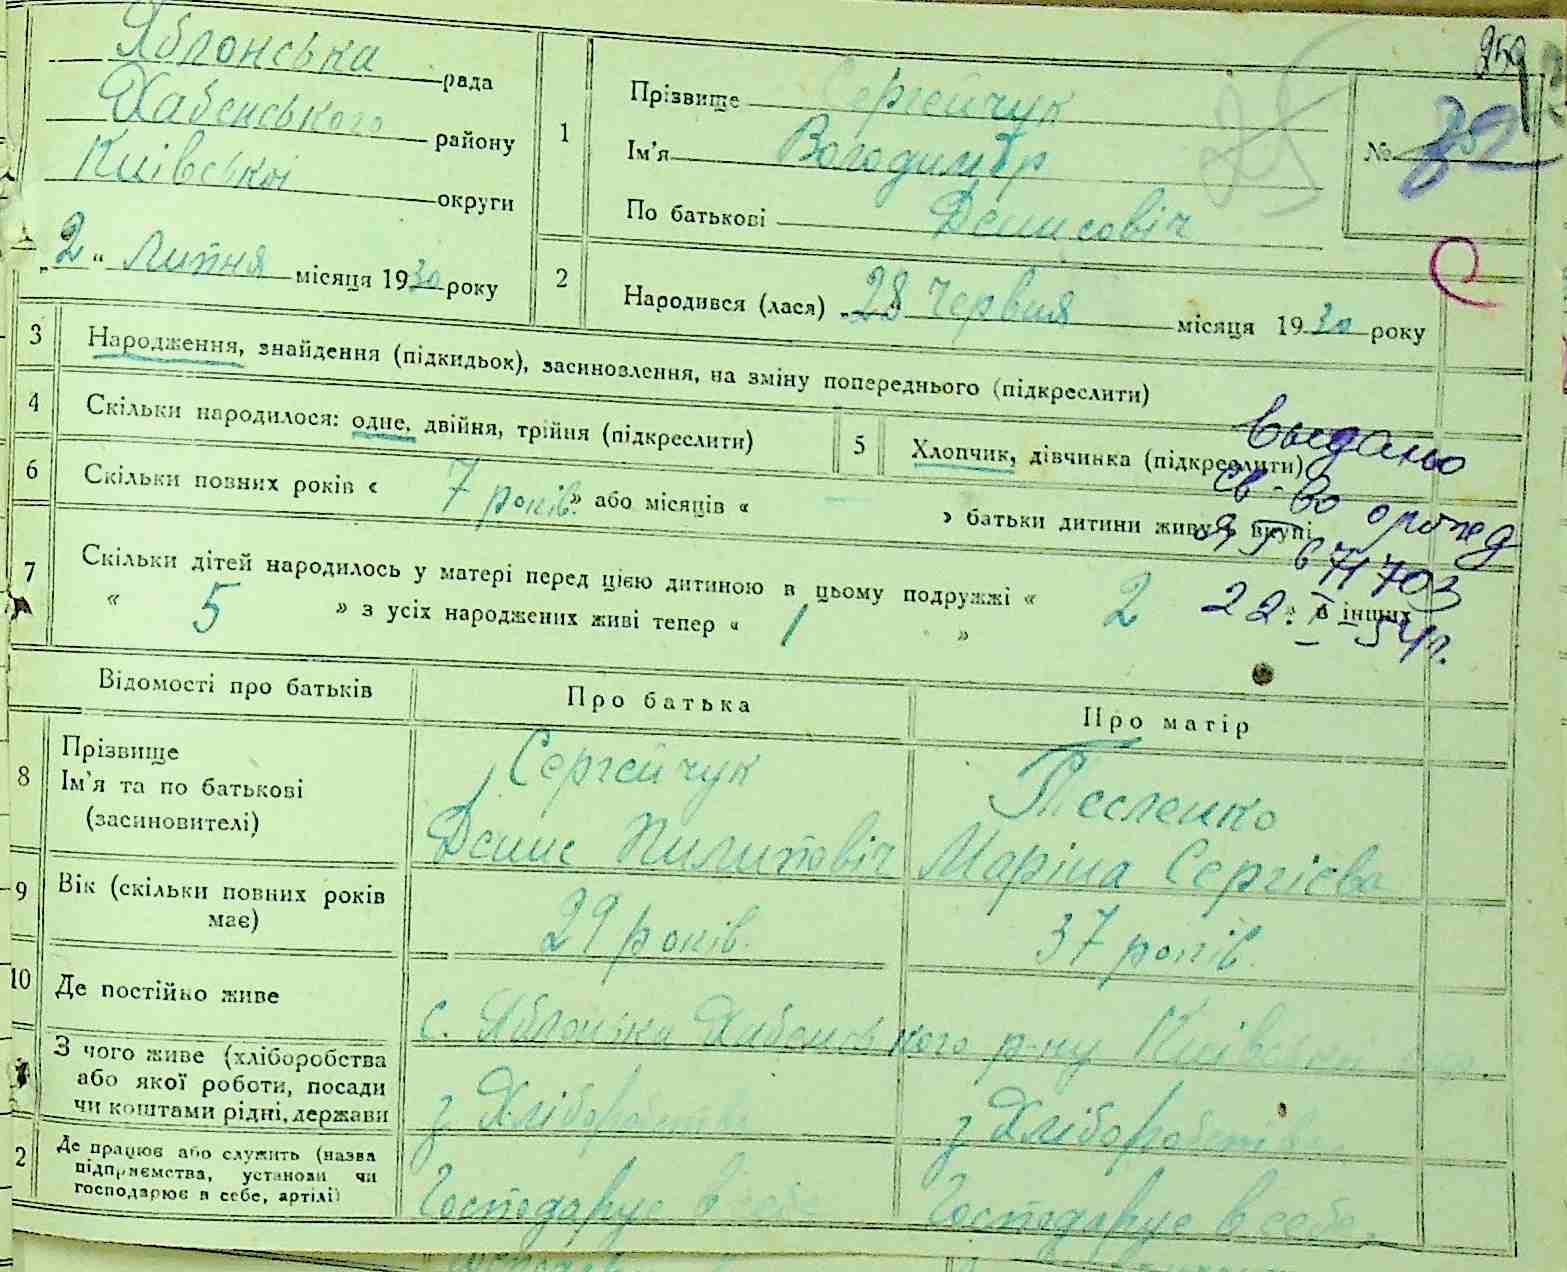 Яблонська рада
Хабенського району
Київської округи
„2“ Липня місяця 1930 року
1
Прізвище Сергейчук
Ім'я Володимір
По батькові Денисовіч
№ 82
2
Народився (лася) „28 Червня місяця 1930 року
3 Народження, знайдення (підкидьок), засиновлення, на зміну попереднього (підкреслити)
4 Скільки народилося: одне, двійня, трійня (підкреслити)
5 Хлопчик, дівчинка (підкреслити)
6 Скільки повних років « 7 років. » або місяців « — » батьки дитини живуть вкупі
7 Скільки дітей народилось у матері перед цією дитиною в цьому подружжі « 2 » в інших
« 5 » з усіх народжених живі тепер « 1 »
Выдано
св-во о рожд
71703
Відомості про батьків
Про батька
Про матір
8 Прізвище
Ім'я та по батькові
(засиновителі)
Сергейчук
Денис Пилиповіч
Тесленко
Маріна Сергієва
9 Вік (скільки повних років
має)
29 років.
37 років.
10 Де постійно живе
с. Яблонька Хабенського р-ну Київської
З чого живе (хліборобства
або якої роботи, посади
чи коштами рідні, держави
з Хліборобства
з Хліборобства
2 Де працює або служить (назва
підприємства, установи чи
господарює в себе, артілі)
Господарує в себе
Господарує в себе.